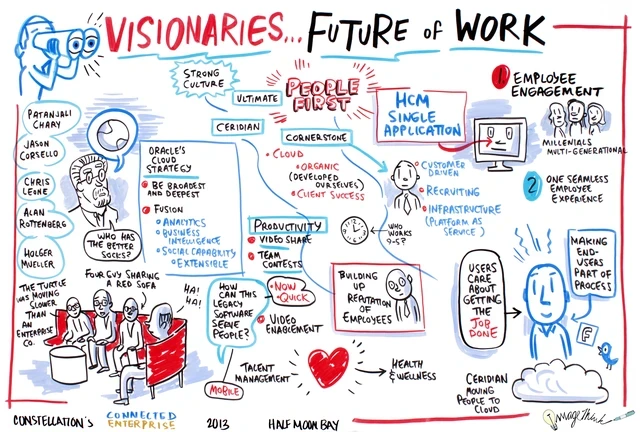 VISIONARIES... FUTURE OF WORK
STRONG
CULTURE
ULTIMATE
PEOPLE
FIRST
CERIDIAN
CORNERSTONE
CLOUD
ORGANIC
(DEVELOPED
OURSELVES)
CLIENT SUCCESS
HCM
SINGLE
APPLICATION
1 EMPLOYEE
ENGAGEMENT
MILLENIALS
MULTI-GENERATIONAL
2 ONE SEAMLESS
EMPLOYEE
EXPERIENCE
PATANJALI
CHARY
JASON
CORSELLO
CHRIS
LEONE
ALAN
ROTTENBERG
HOLGER
MUELLER
WHO HAS
THE BETTER
SOCKS?
ORACLE'S
CLOUD
STRATEGY
BE BROADEST
AND DEEPEST
FUSION
ANALYTICS
BUSINESS
INTELLIGENCE
SOCIAL CAPABILITY
EXTENSIBLE
CUSTOMER
DRIVEN
RECRUITING
INFRASTRUCTURE
(PLATFORM AS
SERVICE)
WHO
WORKS
9-5?
PRODUCTIVITY
VIDEO SHARE
TEAM
CONTESTS
NOW
QUICK
VIDEO
ENABLEMENT
BUILDING
UP
REPUTATION
OF
EMPLOYEES
USERS
CARE ABOUT
GETTING
THE
JOB
DONE
MAKING
END-
USERS
PART OF
PROCESS
F
THE TURTLE
WAS MOVING
SLOWER
THAN
AN
ENTERPRISE
CO.
FOUR GUY SHARING
A RED SOFA
HA!
HA!
HOW CAN
THIS
LEGACY
SOFTWARE
SERVE
PEOPLE?
MOBILE
TALENT
MANAGEMENT
HEALTH
& WELLNESS
CERIDIAN
MOVING
PEOPLE TO
CLOUD
CONSTELLATION'S CONNECTED
ENTERPRISE 2013 HALF MOON BAY
ImageThink